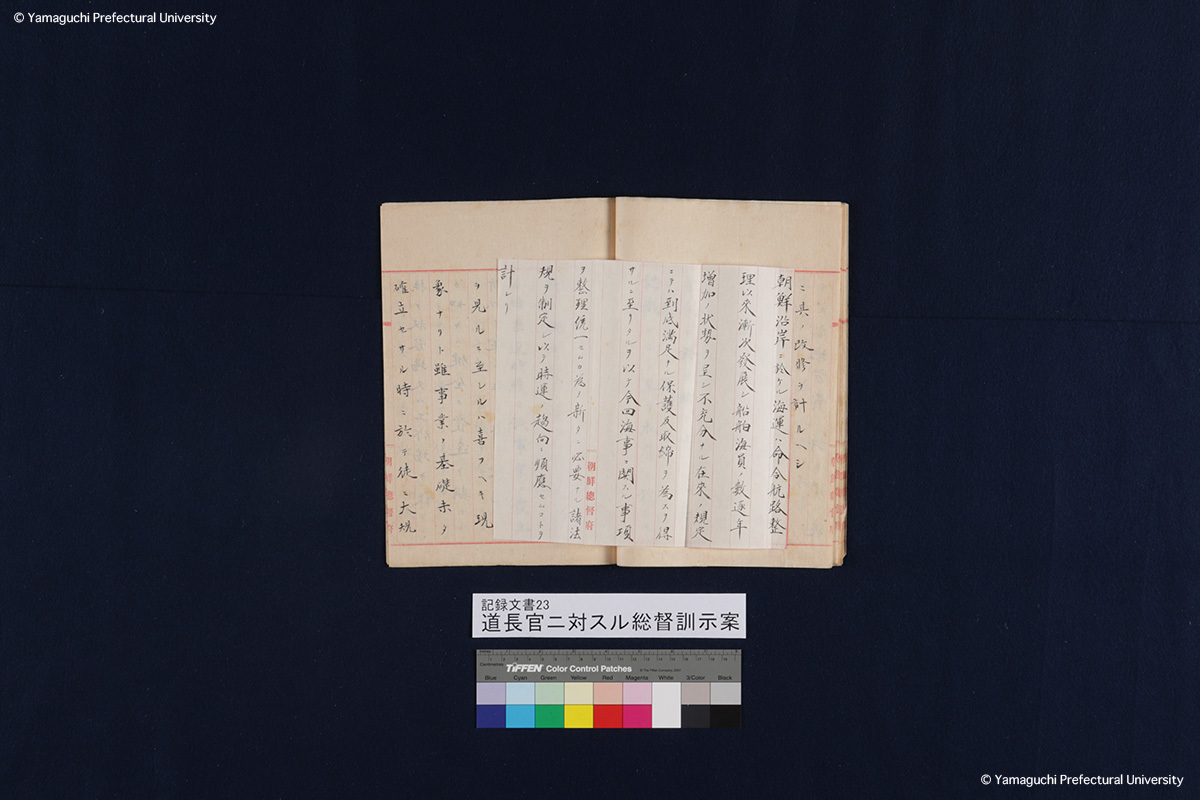 © Yamaguchi Prefectural University
ニ其ノ改修ヲ計ルヘシ
朝鮮沿岸ニ於ケル海運ハ命令航路整
理以来漸次發展シ船舶海員ノ数逐年
増加ノ状勢ヲ呈シ不充分ナル在来ノ規定
ニテハ到底満足ナル保護及取締ヲ為スヲ得
サルニ至リタルヲ以テ今回海事ニ関スル事項
ヲ整理統一セムカ為ノ新タニ必要ナル諸法
規ヲ制定シ以テ時運ノ趨向ニ順應セムコトヲ
計レリ
朝鮮總督府
ヲ見ルニ至レルハ喜フヘキ現
象ナリト雖事業ノ基礎未タ
確立セサル時ニ於テ徒ニ大規
朝鮮總督府
記録文書23
道長官ニ対スル総督訓示案
Inches
Centimetres
TIFFEN Color Control Patches
Blue Cyan Green Yellow Red Magenta White 3/Color Black
© Yamaguchi Prefectural University